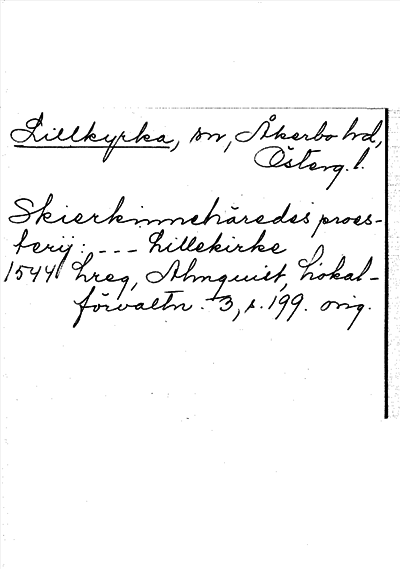 Lillkyrka, sn, Åkerbo hd,
Österg. l.
Skierkinneháredes proes-
terij: --- Lillekirke
1544 hreg, Almquist, Lokal-
förvaltn. 3, s. 199. orig.